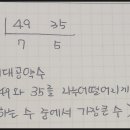 49 35
7 5
대공약수
49와 35를 나누어떨어지게
하는 수 중에서 가장 큰 수